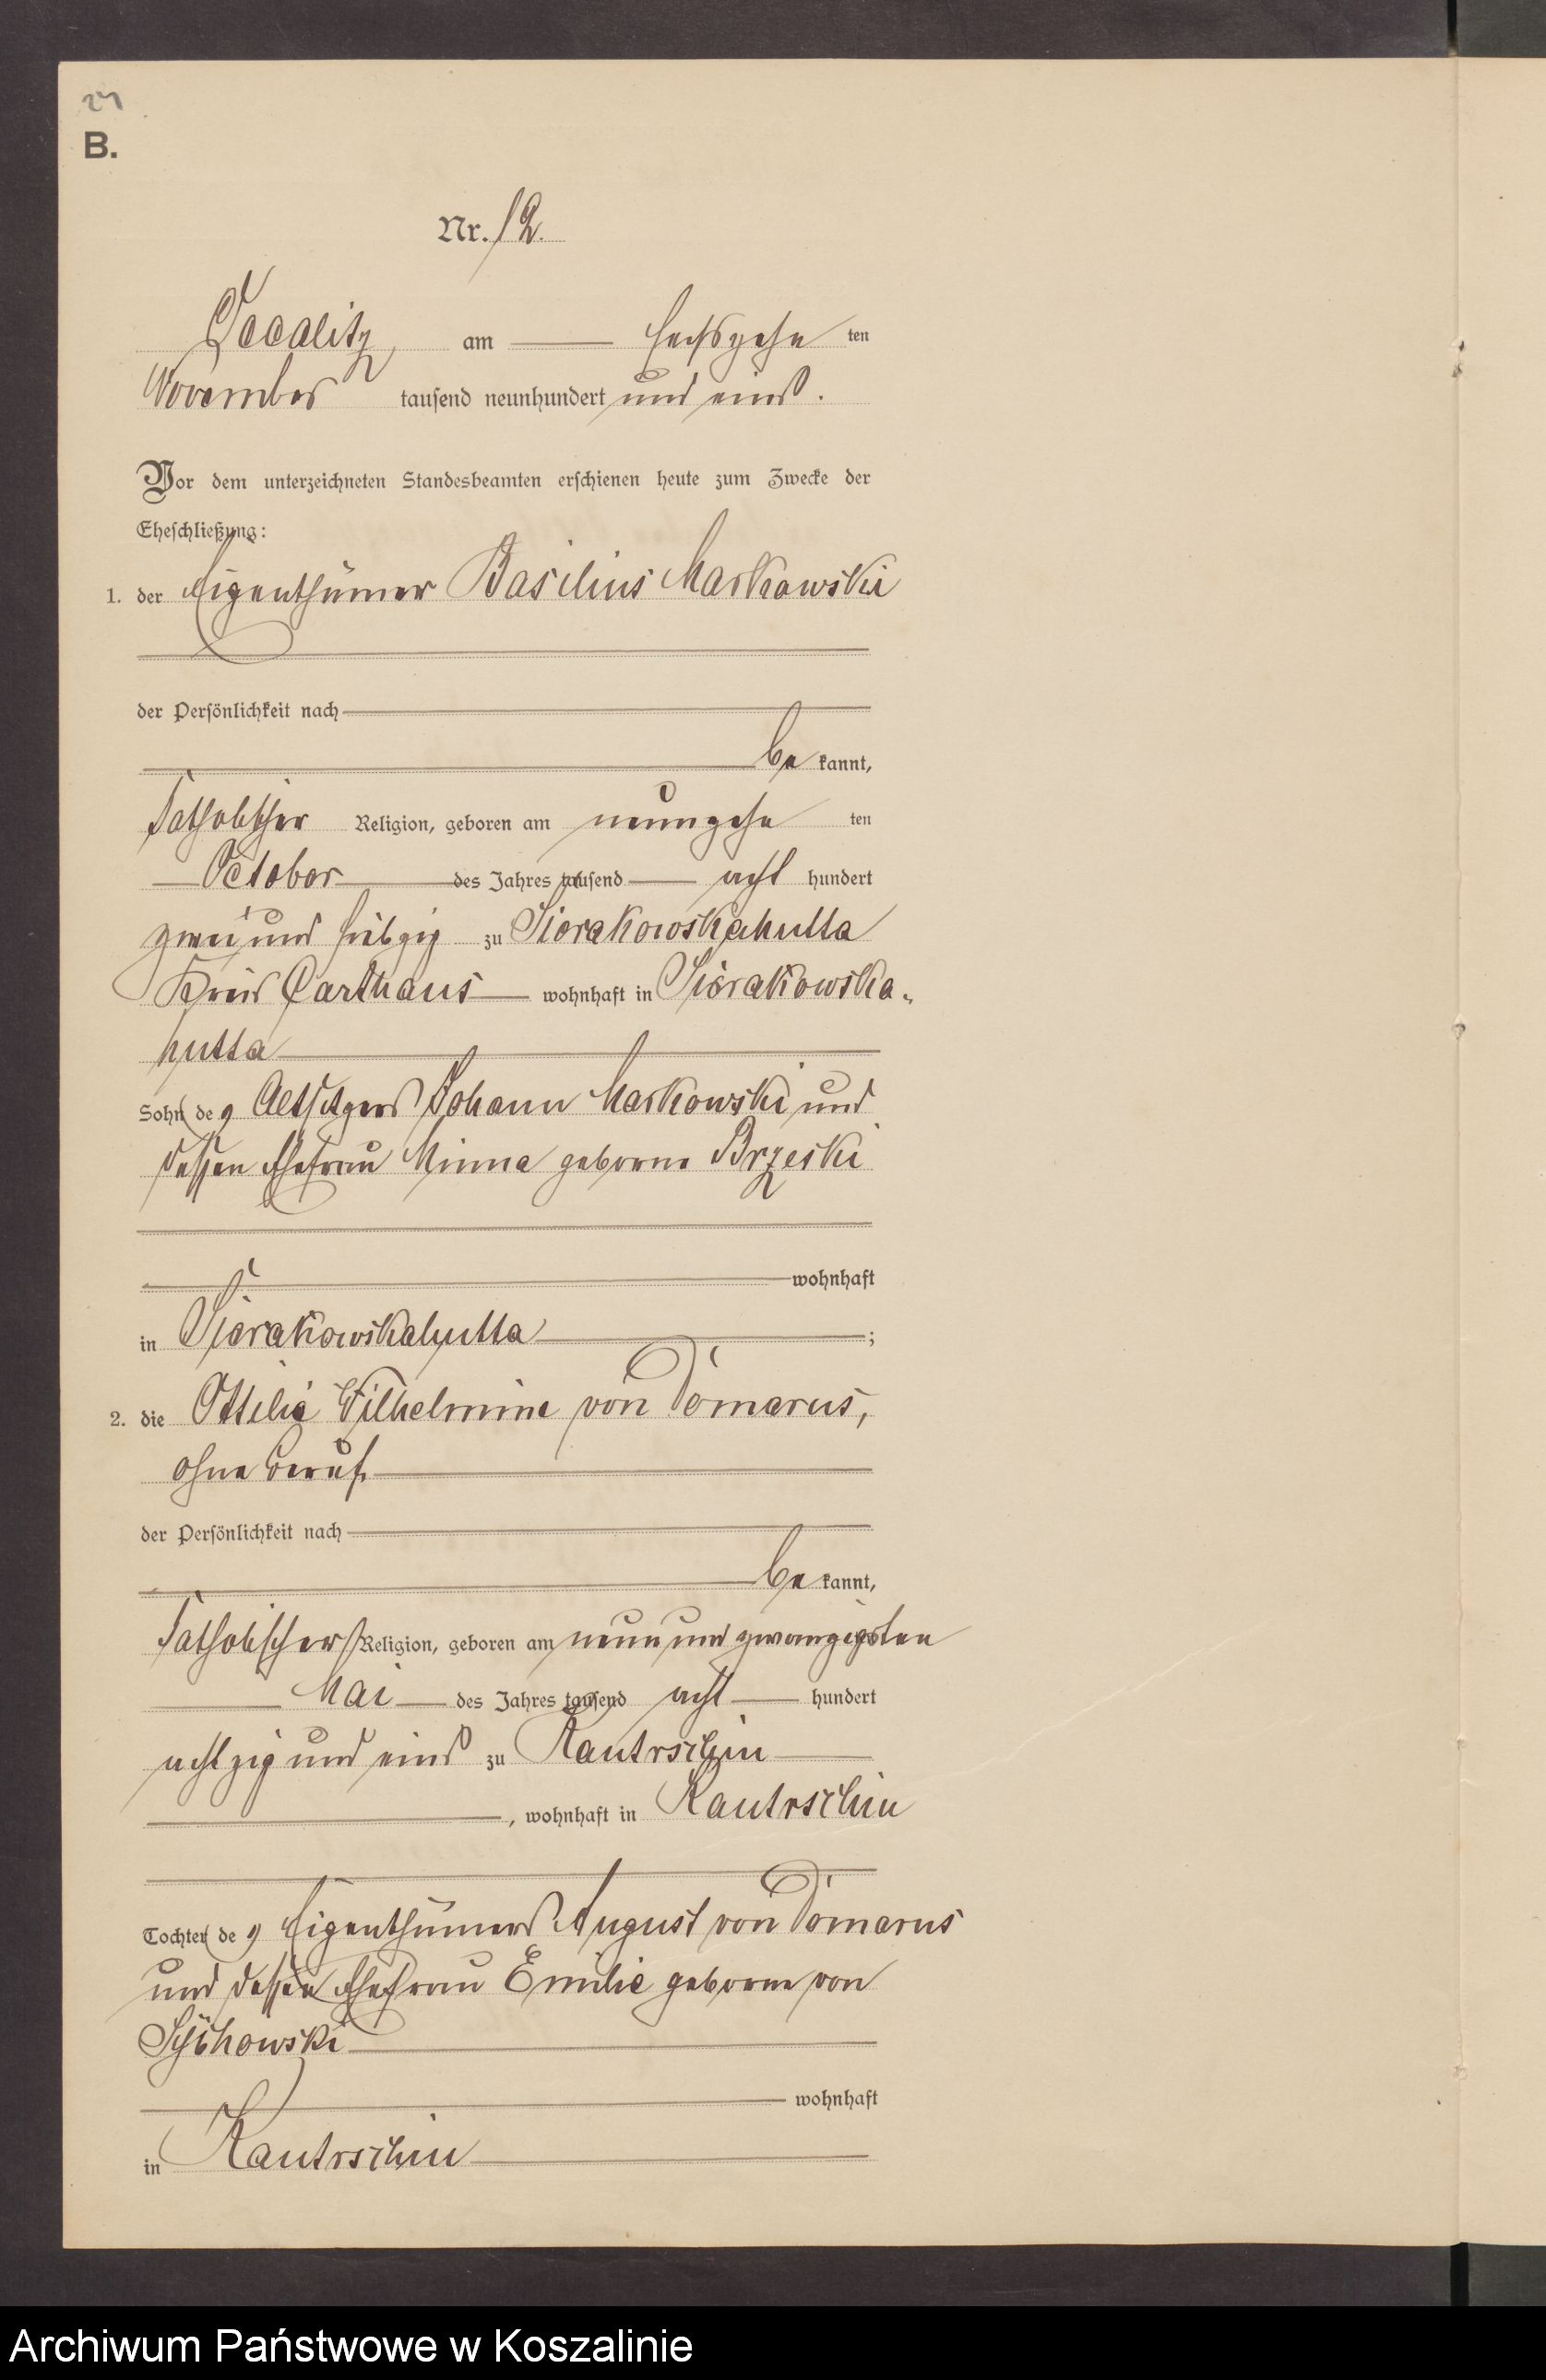 24
B.
Nr. 12.
Jassenitz, am sechszehn ten
November tausend neunhundert und eins.
Vor dem unterzeichneten Standesbeamten erschienen heute zum Zwecke der
Eheschließung:
1. der Eigenthümer Basilius Markowski
der Persönlichkeit nach
be kannt,
katholischer Religion, geboren am neunzehn ten
October des Jahres tausend acht hundert
zwei und siebzig zu Sierakowskahutta
Kreis Carthaus wohnhaft in Sierakowska-
hutta
Sohn des Altsitzers Johann Markowski und
dessen Ehefrau Minna geborne Brzeski
wohnhaft
in Sierakowskahutta ;
2. die Ottilie Wilhelmine von Domarus,
ohne Beruf
der Persönlichkeit nach
be kannt,
katholischer Religion, geboren am neun und zwanzigsten
Mai des Jahres tausend acht hundert
achtzig und eins zu Kautrschin
, wohnhaft in Kautrschin
Tochter des Eigenthümers August von Domarus
und dessen Ehefrau Emilie geborne von
Sychowski
wohnhaft
in Kautrschin
Archiwum Państwowe w Koszalinie